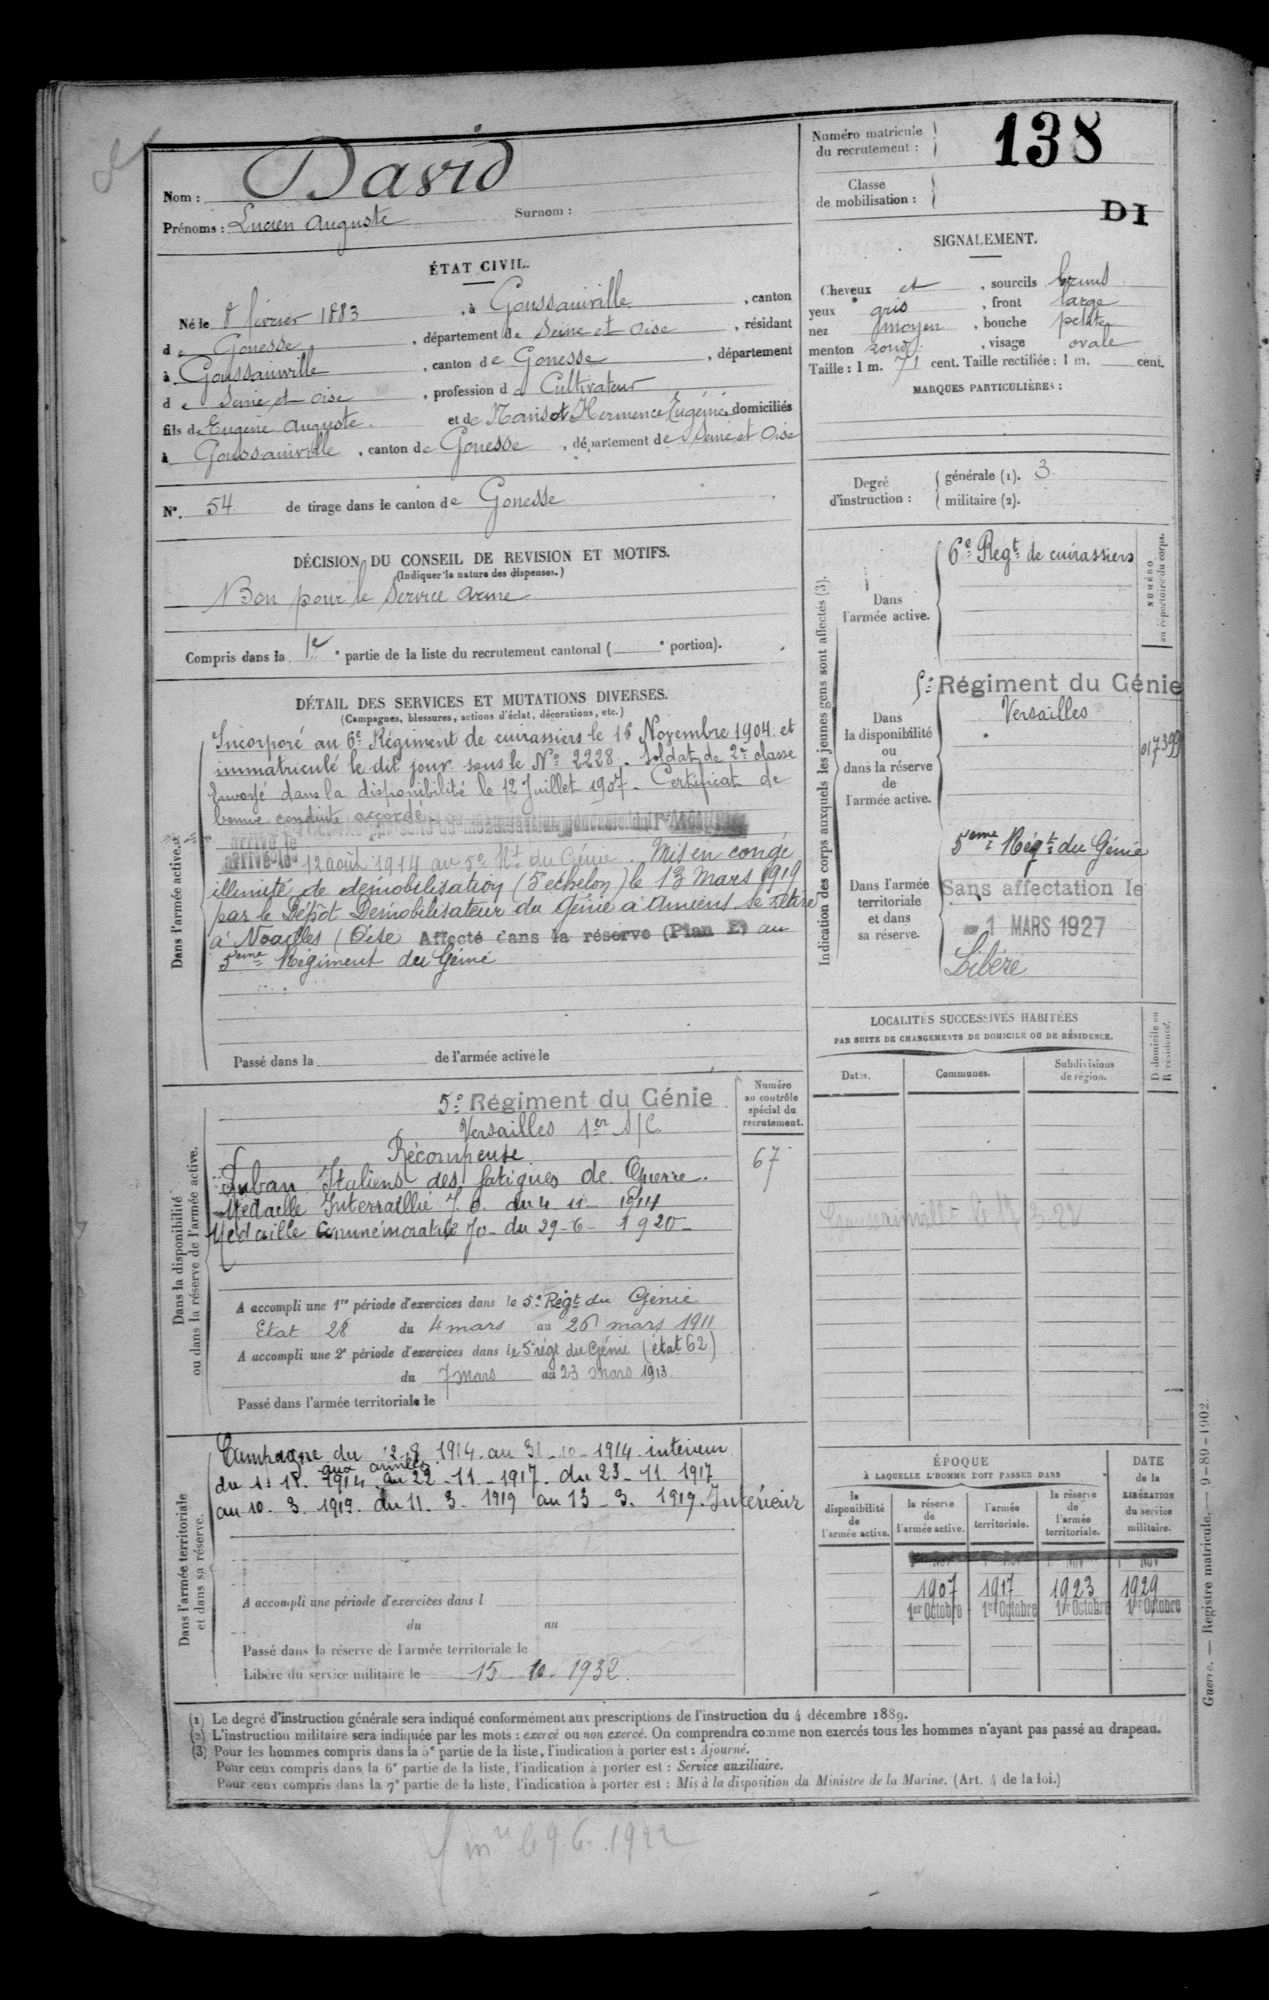 Numéro matricule
du recrutement :
138
Classe
de mobilisation :
DI
Nom : David
Prénoms : Lucien Auguste Surnom :
ÉTAT CIVIL.
Né le 8 février 1883, à Goussainville, canton
de Gonesse, département de Seine et Oise, résidant
à Goussainville, canton de Gonesse, département
de Seine et Oise, profession de Cultivateur
fils de Eugène Auguste et de Hermence Eugénie, domiciliés
à Goussainville, canton de Gonesse, département de Seine et Oise
N°. 54 de tirage dans le canton de Gonesse
DÉCISION DU CONSEIL DE REVISION ET MOTIFS.
(Indiquer la nature des dispenses.)
Bon pour le Service Armé
Compris dans la 1e partie de la liste du recrutement cantonal ( e portion).
DÉTAIL DES SERVICES ET MUTATIONS DIVERSES.
(Campagnes, blessures, actions d'éclat, décorations, etc.)
Dans l'armée active.
Incorporé au 6e Régiment de cuirassiers le 16 Novembre 1904 et
immatriculé le dit jour sous le No 2228. Soldat de 2e classe
Envoyé dans la disponibilité le 12 Juillet 1907. Certificat de
bonne conduite accordé.
arrivé le 12 août 1914 au 5e Rt du Génie. Mis en congé
illimité de démobilisation (5e échelon) le 13 Mars 1919
par le Dépôt Démobilisateur du Génie à Amiens se retire
à Noailles (Oise Affecté dans la réserve (Plan E) au
5eme Régiment du Génie
Passé dans la de l'armée active le
Dans la disponibilité
ou dans la réserve de l'armée active.
Numéro
au contrôle
spécial du
recrutement.
67
5e Régiment du Génie
Versailles 1er S/C
Récompense
Ruban Italiens des fatigues de Guerre.
Médaille Interralliée J.O. du 4-11-1914
Médaille Commémorative JO- du 29-6-1920-
A accompli une 1re période d'exercices dans le 5e Régt du Génie
Etat 28 du 4 mars au 26 mars 1911
A accompli une 2e période d'exercices dans le 5e régt du Génie (état 62)
du 7 mars au 23 mars 1913
Passé dans l'armée territoriale le
Dans l'armée territoriale
et dans sa réserve.
Campagne du 12-8 1914 au 31-10-1914 intérieur
aux armées
du 1-11-1914 au 22-11-1917. du 23-11 1917
au 10-3-1919. du 11-3-1919 au 13-3-1919. Intérieur
A accompli une période d'exercices dans l
du au
Passé dans la réserve de l'armée territoriale le
Libéré du service militaire le 15-10-1932.
SIGNALEMENT.
Cheveux et, sourcils bruns
yeux gris, front large
nez moyen, bouche petite
menton rond, visage ovale
Taille : 1 m. 71 cent. Taille rectifiée : 1 m. cent.
MARQUES PARTICULIÈRES :
Degré
d'instruction :
générale (1). 3
militaire (2).
Indication des corps auxquels les jeunes gens sont affectés (3).
NUMÉRO
au répertoire du corps.
Dans
l'armée active.
6e Regt de cuirassiers
Dans
la disponibilité
ou
dans la réserve
de
l'armée active.
5e Régiment du Génie
Versailles
017399
Dans l'armée
territoriale
et dans
sa réserve.
5eme Régt du Génie
Sans affectation le
1 MARS 1927
Libéré
LOCALITÉS SUCCESSIVES HABITÉES
PAR SUITE DE CHANGEMENTS DE DOMICILE OU DE RÉSIDENCE.
Dates.
Communes.
Subdivisions
de région.
D domicile ou
R résidence.
Goussainville
ÉPOQUE
À LAQUELLE L'HOMME DOIT PASSER DANS
la
disponibilité
de
l'armée active.
la réserve
de
l'armée active.
l'armée
territoriale.
la réserve
de
l'armée
territoriale.
DATE
de la
LIBÉRATION
du service
militaire.
1907 1917 1923 1929
1er Octobre 1er Octobre 1er Octobre 1er Octobre
(1) Le degré d'instruction générale sera indiqué conformément aux prescriptions de l'instruction du 4 décembre 1889.
(2) L'instruction militaire sera indiquée par les mots : exercé ou non exercé. On comprendra comme non exercés tous les hommes n'ayant pas passé au drapeau.
(3) Pour les hommes compris dans la 5e partie de la liste, l'indication à porter est : Ajourné.
Pour ceux compris dans la 6e partie de la liste, l'indication à porter est : Service auxiliaire.
Pour ceux compris dans la 7e partie de la liste, l'indication à porter est : Mis à la disposition du Ministre de la Marine. (Art. 4 de la loi.)
Guerre. — Registre matricule. — 9-89-1902.